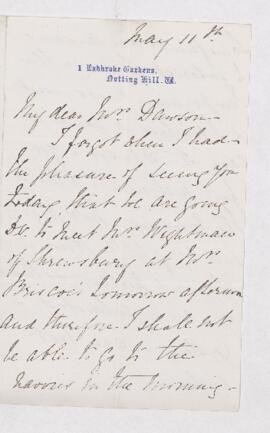 May 11th
1 Ladbroke Gardens,
Notting Hill. W.
My dear Mrs Dawson -
I forgot when I had -
the pleasure of seeing you
today, that we are going
D.V. to meet Mrs Wightman
of Shrewsbury at Mrs
Briscoe's tomorrow afternoon
and therefore I shall not
be able to go to the
in the morning -